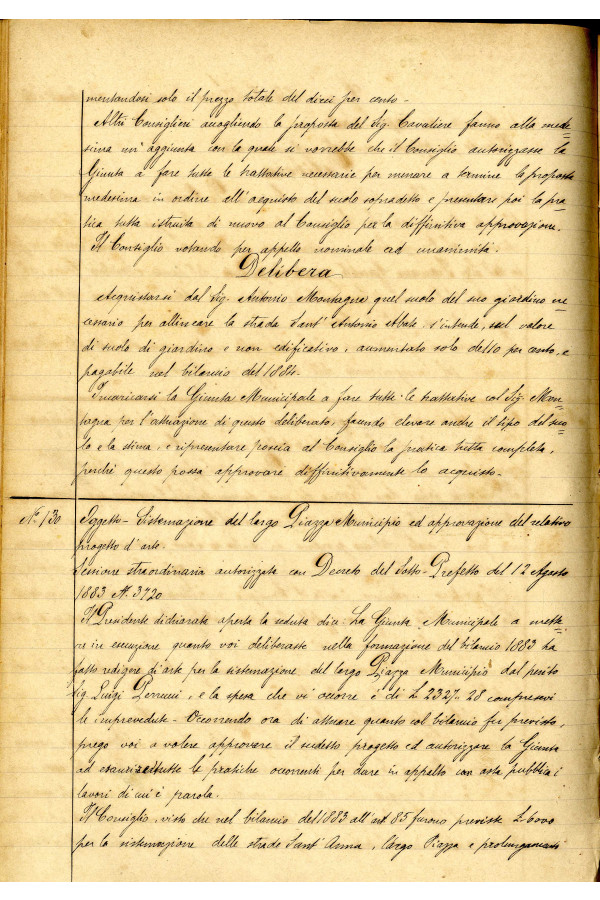 mentandosi solo il prezzo totale del dieci per cento -
Altri Consiglieri accogliendo la proposta del Sig. Cavaliere fanno alla mede=
sima un'aggiunta con la quale si vorrebbe che il Consiglio autorizzasse la
Giunta a fare tutte le trattative necessarie per menare a termine la proposta
medesima in ordine all'acquisto del suolo sopradetto e presentare poi la pra=
tica tutta istruita di nuovo al Consiglio per la diffinitiva approvazione.
Il Consiglio votando per appello nominale ad unanimità.
Delibera
Acquistarsi dal Sig. Antonio Montagna quel suolo del suo giardino ne=
cessario per allineare la strada Sant'Antonio Abate, s'intende, sul valore
di suolo di giardino e non edificativo, aumentato solo del 10 per cento, e
pagabile nel bilancio del 1884.
Incaricarsi la Giunta Municipale a fare tutte le trattative col Sig. Mon=
tagna per l'attuazione di questo deliberato, facendo elevare anche il tipo del suo=
lo e la stima, e ripresentare poscia al Consiglio la pratica tutta completa,
perchè questo possa approvare diffinitivamente lo acquisto.
N. 130 Oggetto - Sistemazione del largo Piazza Municipio ed approvazione del relativo
progetto d'arte.
Sessione straordinaria autorizzata con Decreto del Sotto-Prefetto del 12 Agosto
1883 N. 3720
Il Presidente dichiarata aperta la seduta dice: La Giunta Municipale a mette=
re in esecuzione quanto voi deliberaste nella formazione del bilancio 1883 ha
fatto redigere d'arte per la sistemazione del largo Piazza Municipio dal perito
Sig. Luigi, e la spesa che vi occorre è di L. 2327. 28 compresevi
le imprevedute - Occorrendo ora di attuare quanto col bilancio fu previsto,
prego voi a volere approvare il sudetto progetto ed autorizzare la Giunta
ad esaurire tutte le pratiche occorrenti per dare in appalto con asta pubblica i
lavori di cui è parola.
Il Consiglio, visto che nel bilancio del 1883 all'art. 85 furono previste L. 6000
per la sistemazione delle strade Sant'Anna, largo Piazza e prolungamenti